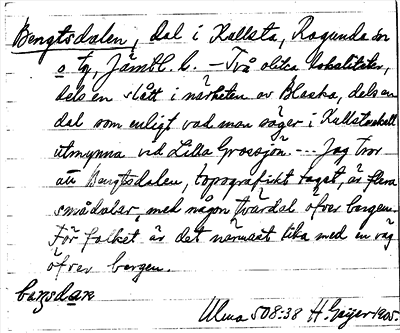 Bengtsdalen, dal i Kallsta, Ragunda sn
o. tg, Jämtl. l. – Två olika lokaliteter,
dels en slått i närheten av Blaska, dels en
dal som enligt vad man säger i Kullsta skall
utmynna vid Lilla Grossjön. --- Jag tror
att Bengtsdalen, topografiskt taget, är flera
smådalar, med någon tvärdal öfver bergen.
För folket är det närmast lika med en väg
öfver bergen.
baŋsdan
Ulma 508:38 H. Geijer 1905.